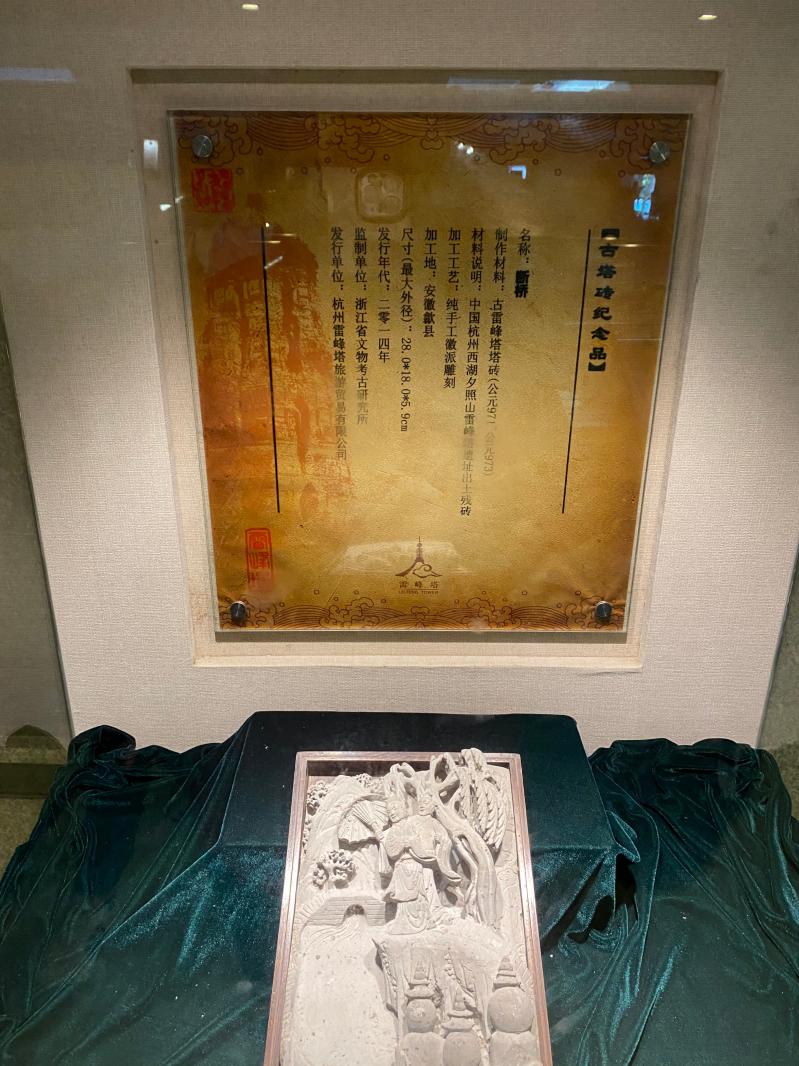 【古塔砖纪念品】
名称：断桥
制作材料：古雷峰塔塔砖(公元971—公元973)
材料说明：中国杭州西湖夕照山雷峰塔遗址出土残砖
加工工艺：纯手工徽派雕刻
加工地：安徽歙县
尺寸(最大外径)：28.0*18.0*5.9cm
发行年代：二零一四年
监制单位：浙江省文物考古研究所
发行单位：杭州雷峰塔旅游贸易有限公司
雷峰塔
LEIFENG TOWER